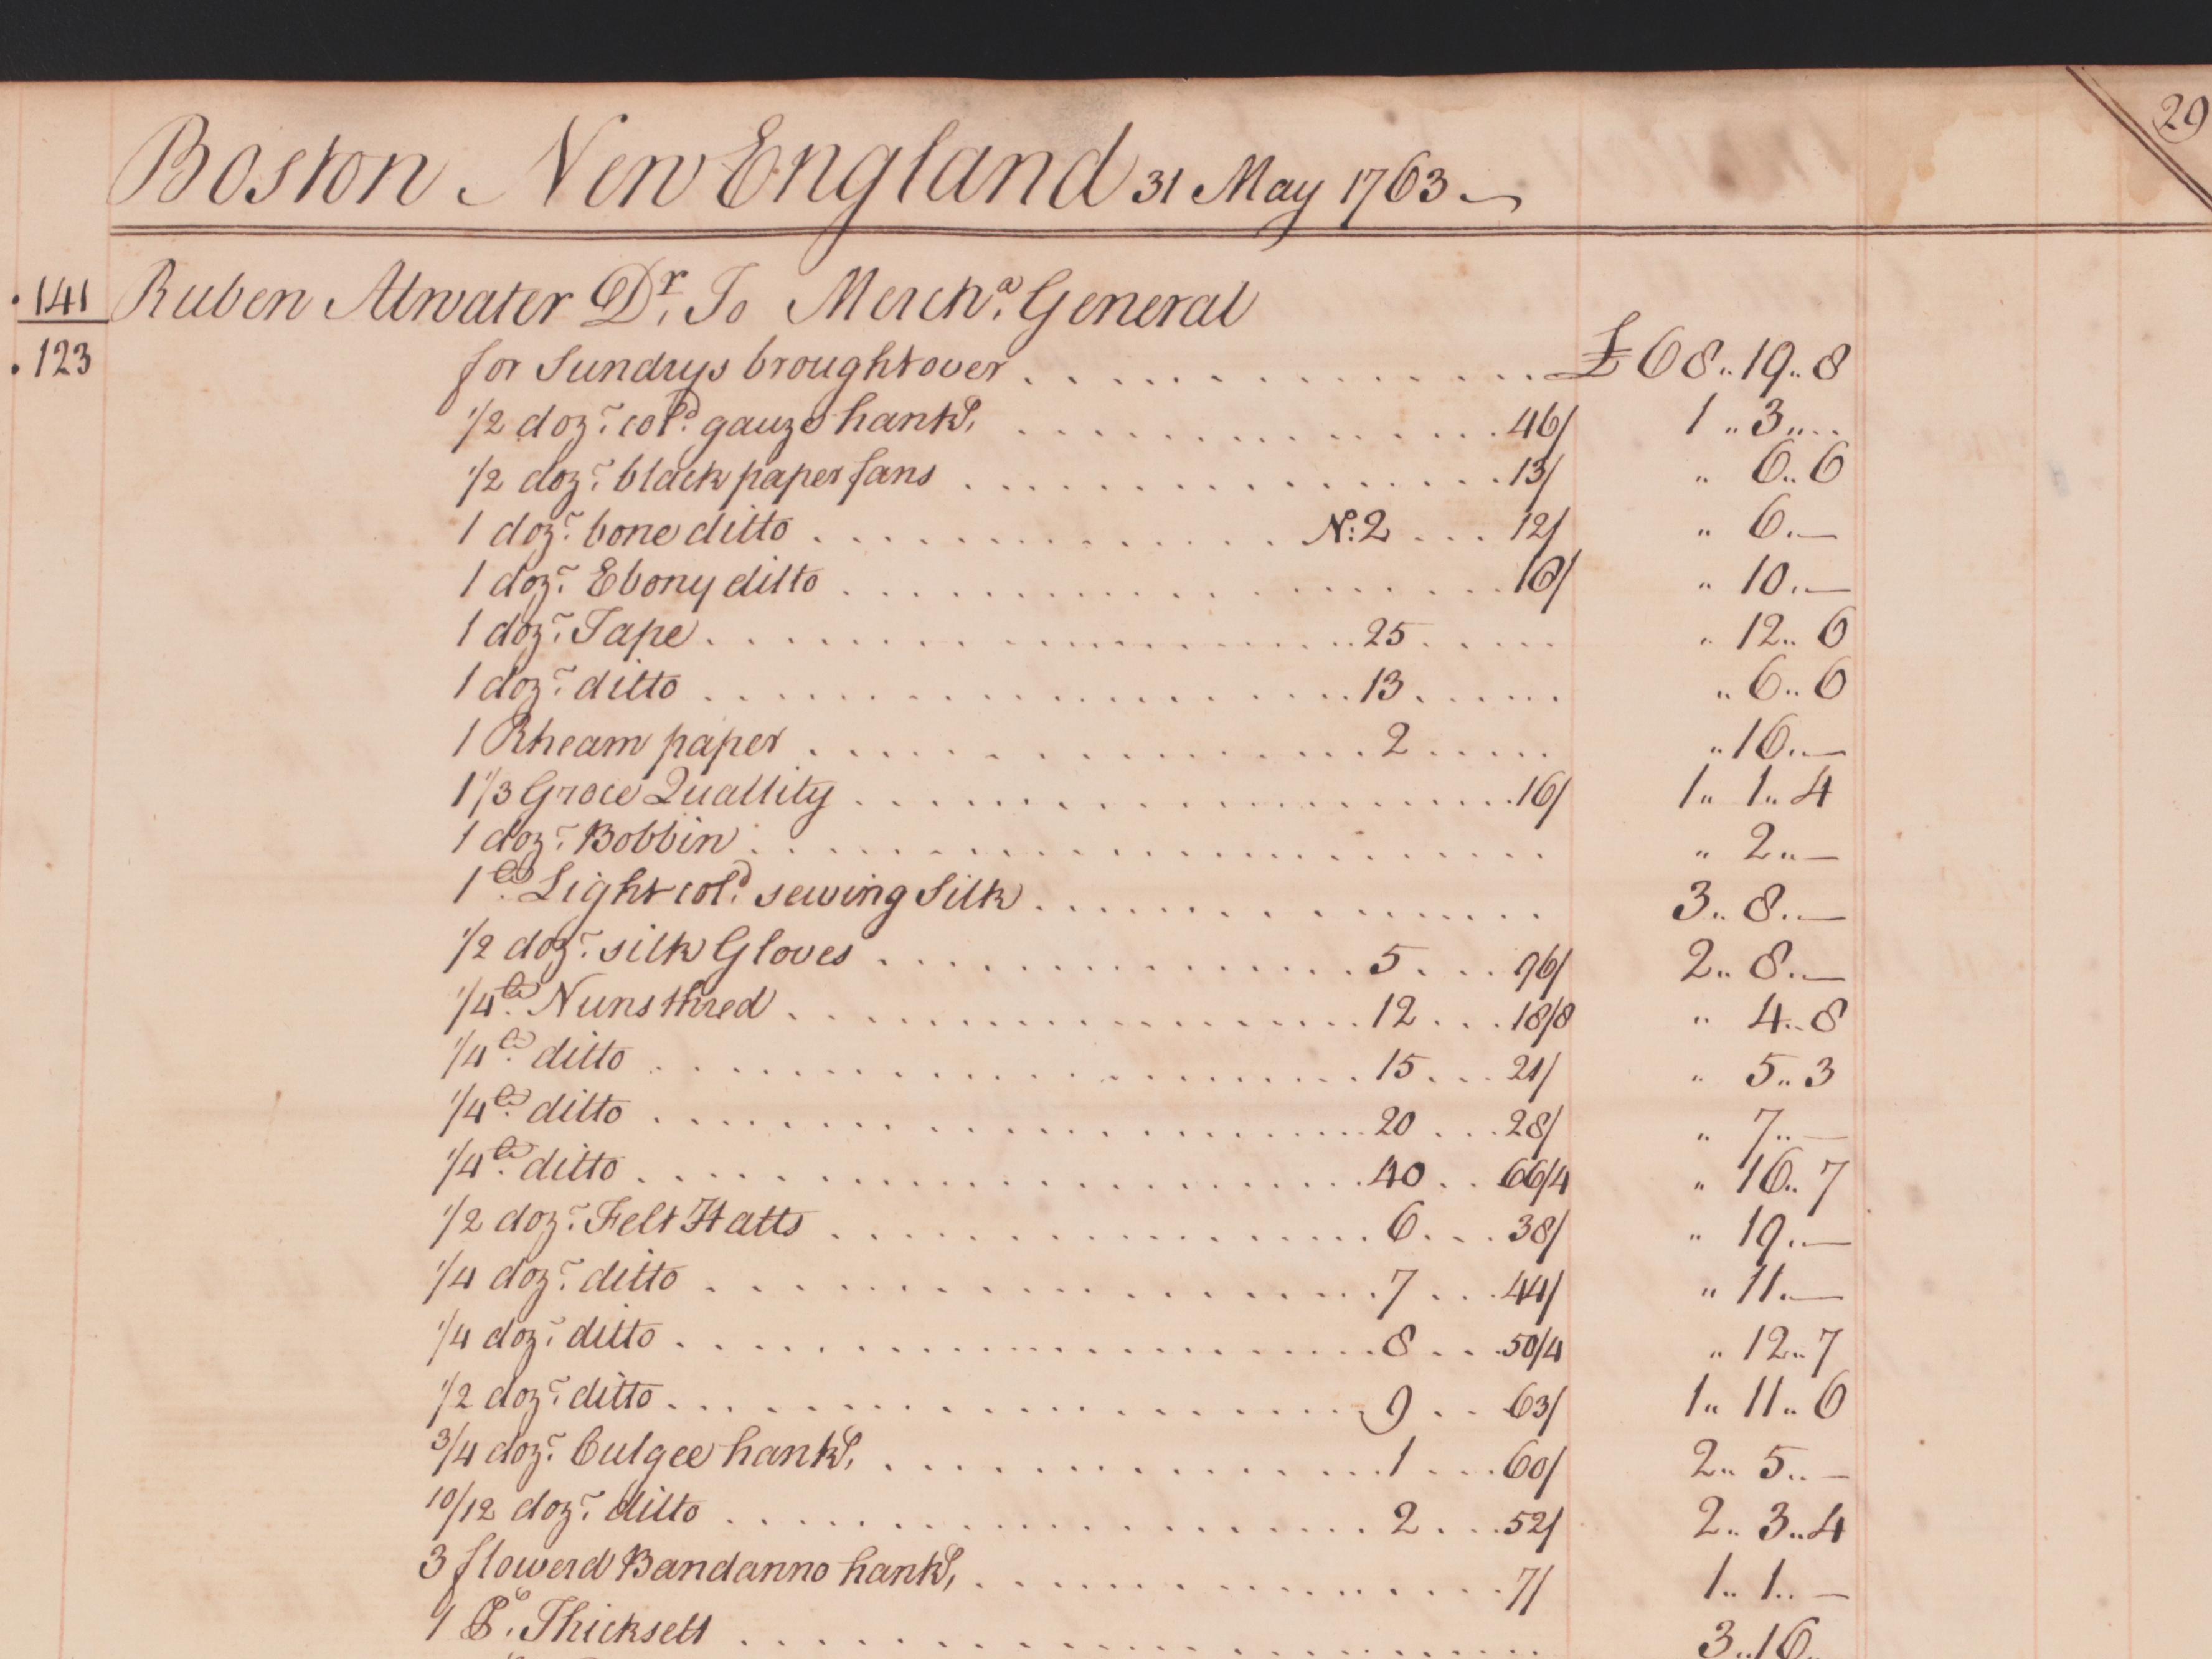 29
Boston New England 31 May 1763
141 Ruben Atwater Dr. To Mercha. General
123
for Sundrys brought over . . . £68..19..8
1/2 doz.n col.d gauze hankfs. . . . 46/ 1..3..
1/2 doz.n black paper fans . . . 13/ " 6..6
1 doz.n bone ditto . . . No:2 . . . 12/ " 6..—
1 doz.n Ebony ditto . . . 10/ " 10..—
1 doz.n Tape . . . 25 . . . " 12..6
1 doz.n ditto . . . 13 . . . " 6..6
1 Rheam paper . . . 2 . . . " 16..—
1 1/3 Groce Quallity . . . 16/ 1..1..4
1 doz.n Bobbin . . . " 2..—
1 lb. Light col.d sewing Silk . . . 3..8..—
1/2 doz.n silk Gloves . . . 5 . . . 96/ 2..8..—
1/4 lb. Nuns thred . . . 12 . . . 18/8 " 4..8
1/4 lb. ditto . . . 15 . . . 21/ " 5..3
1/4 lb. ditto . . . 20 . . . 28/ " 7..—
1/4 lb. ditto . . . 40 . . 66/4 " 16..7
1/2 doz.n Felt Hatts . . . 6 . . . 38/ " 19..—
1/4 doz.n ditto . . . 7 . . . 44/ " 11..—
1/4 doz.n ditto . . . 8 . . . 50/4 " 12..7
1/2 doz.n ditto . . . 9 . . 63/ 1..11..6
3/4 doz.n Culgee hankfs. . . . 1 . . . 60/ 2..5..—
10/12 doz.n ditto . . . 2 . . . 52/ 2..3..4
3 flowerd Bandanno hankfs. . . . 7/ 1..1..—
1 Ps. Thicksett . . . 3..16..